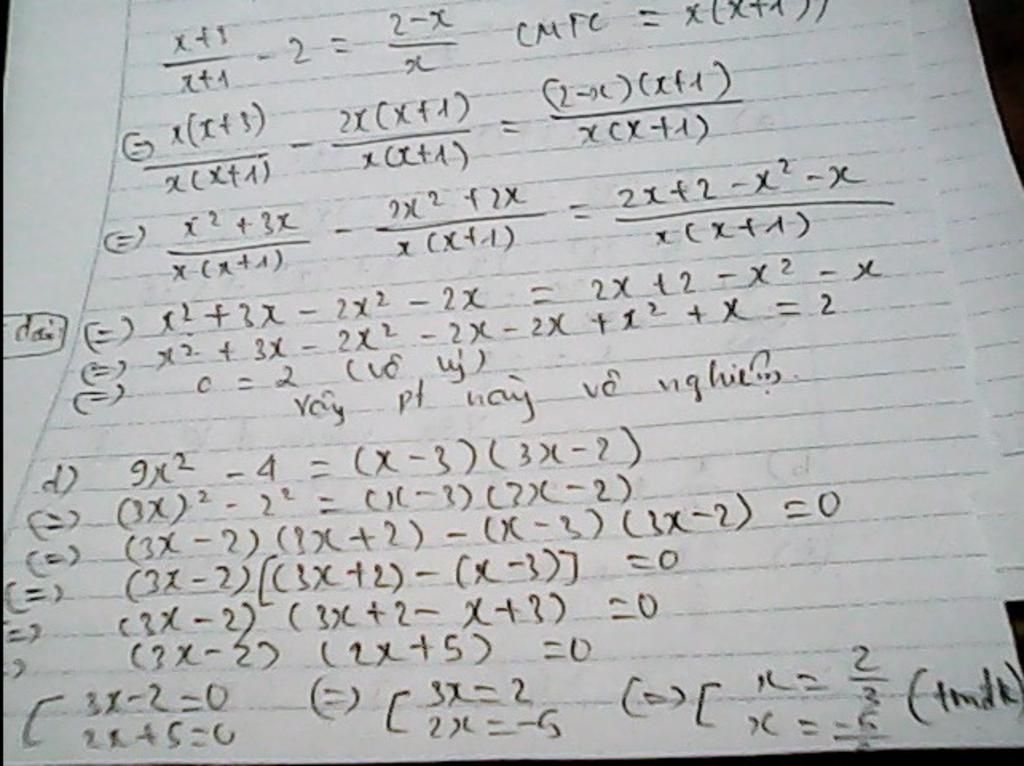 x+3/x+1 - 2 = 2-x/x CMTC = x(x+1)
(=) x(x+3)/x(x+1) - 2x(x+1)/x(x+1) = (2-x)(x+1)/x(x+1)
(=) x² + 3x/x(x+1) - 2x² + 2x/x(x+1) = 2x+2-x²-x/x(x+1)
(=) x² + 3x - 2x² - 2x = 2x + 2 - x² - x
(=) x² + 3x - 2x² - 2x - 2x + x² + x = 2
(=) 0 = 2 (vô lý)
vậy pt này vô nghiệm
d) 9x² - 4 = (x-3)(3x-2)
(=) (3x)² - 2² = (x-3)(3x-2)
(=) (3x-2)(3x+2) - (x-3)(3x-2) = 0
(=) (3x-2)[(3x+2)-(x-3)] = 0
=) (3x-2)(3x+2-x+3) = 0
) (3x-2) (2x+5) = 0
[ 3x-2=0 (=) [ 3x=2 (=) [ x = 2/3 (tmđk)
2x+5=0 2x=-5 x = -5/2